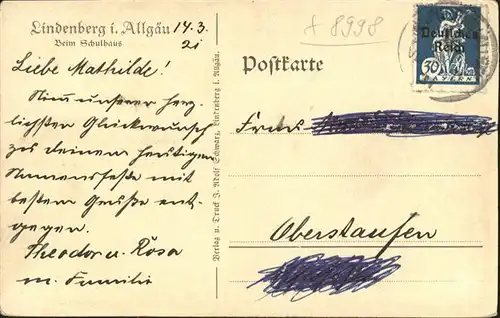 Lindenberg i. Allgäu 14.3.
Beim Schulhaus 21
Liebe Mathilde!
Nimm unserer herz-
lichsten Glückwunsch
zu deinem heutigen
Namensfeste mit
bestem Gruße ent-
gegen.
Theodor u. Rosa
m. Familie
Verlag u. Druck J. Adolf Schwarz, Lindenberg i. Allgäu.
8998
Postkarte
Deutsches
Reich
30
BAYERN
Frau
Oberstaufen